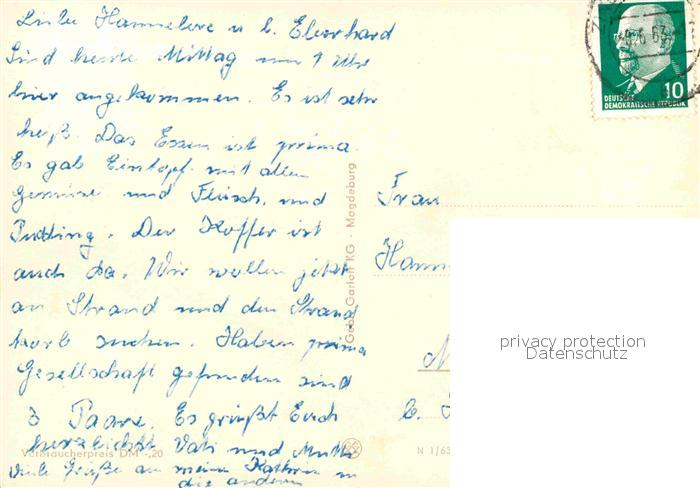 Liebe Hannelore u. b. Eberhard
Sind heute Mittag um 1 Uhr
hier angekommen. Es ist sehr
heiß. Das Essen ist prima.
Es gab Eintopf mit allem
Gemüse und Fleisch, und
Pudding. Der Koffer ist
auch da. Wir wollen jetzt
an Strand und den Strand
korb suchen. Haben prima
Gesellschaft gefunden sind
3 Paare. Es grüßt Euch
herzlichst Vati und Mutti
Viele Grüße an meine Kathrin u
die anderen
Verbraucherpreis DM -,20
Gebr. Garloff KG · Magdeburg
N 1/63
63
10
DEUTSCHE
DEMOKRATISCHE REPUBLIK
Frau
Hann
M
b.
privacy protection
Datenschutz